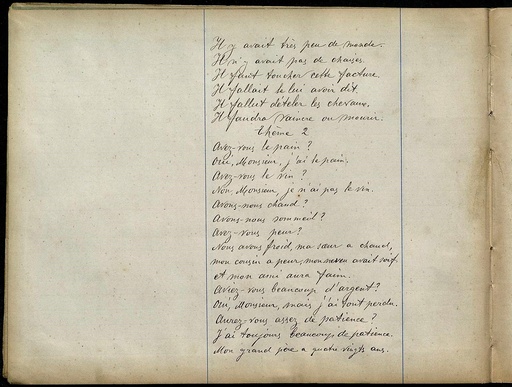 Il y avait très peu de monde.
Il n'y avait pas de chaises.
Il faut toucher cette facture.
Il fallait le lui avoir dit.
Il fallut dételer les chevaux.
Il faudra vaincre ou mourir.
Thème 2
Avez-vous le pain?
Oui, Monsieur, j'ai le pain.
Avez-vous le vin?
Non, Monsieur, je n'ai pas le vin.
Avons-nous chaud?
Avons-nous sommeil?
Avez-vous peur?
Nous avons froid, ma sœur a chaud,
mon cousin a peur, mon neveu avait soif
et mon ami aura faim.
Aviez-vous beaucoup d'argent?
Oui, Monsieur, mais j'ai tout perdu.
Aurez-vous assez de patience?
J'ai toujours beaucoup de patience.
Mon grand père a quatre vingts ans.